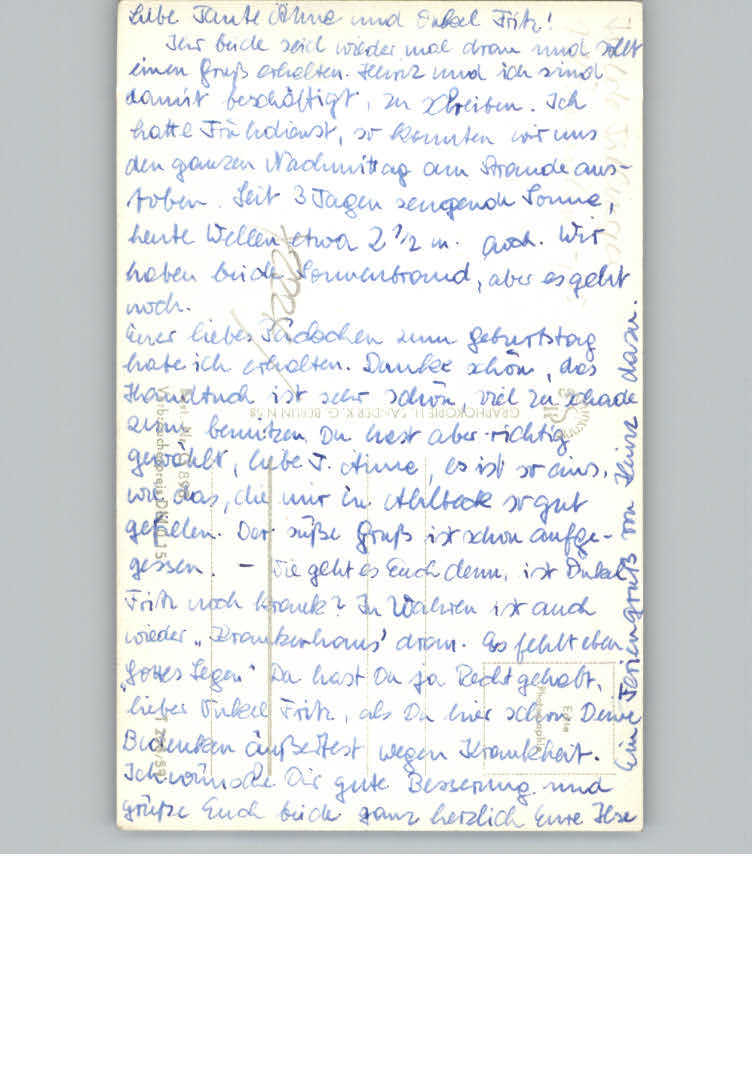 Liebe Tante Änne und Onkel Fritz!
Ihr beide seid wieder mal dran und sollt
einen Gruß erhalten. Heinz und ich sind
damit beschäftigt, zu schreiben. Ich
hatte Frühdienst, so konnten wir uns
den ganzen Nachmittag am Strande aus-
toben. Seit 3 Tagen sengende Sonne,
heute Wellen etwa 2 1/2 m. hoch. Wir
haben beide Sonnenbrand, aber es geht
noch.
Euer liebes Päckchen zum Geburtstag
habe ich erhalten. Danke schön, das
Handtuch ist sehr schön, viel zu schade
zum benützen. Du hast aber richtig
gewählt, liebe T. Änne, es ist so eins,
wie das, die mir in Ahlbeck so gut
gefielen. Der süße Gruß ist schon aufge-
gessen. – Wie geht es Euch denn, ist Onkel
Fritz noch krank? In Wahren ist auch
wieder „Krankenhaus" dran. Es fehlt eben
„Gottes Segen" Da hast Du ja Recht gehabt,
lieber Onkel Fritz, als Du hier schon Deine
Bedenken äußertest wegen Krankheit.
Ich wünsche Dir gute Besserung und
grüße Euch beide ganz herzlich Eure Ilse
Ein Feriengruß von Heinz dazu.
GRAPHOKOPIE H. SANDER K. G. BERLIN N 58
Echte
Photographie